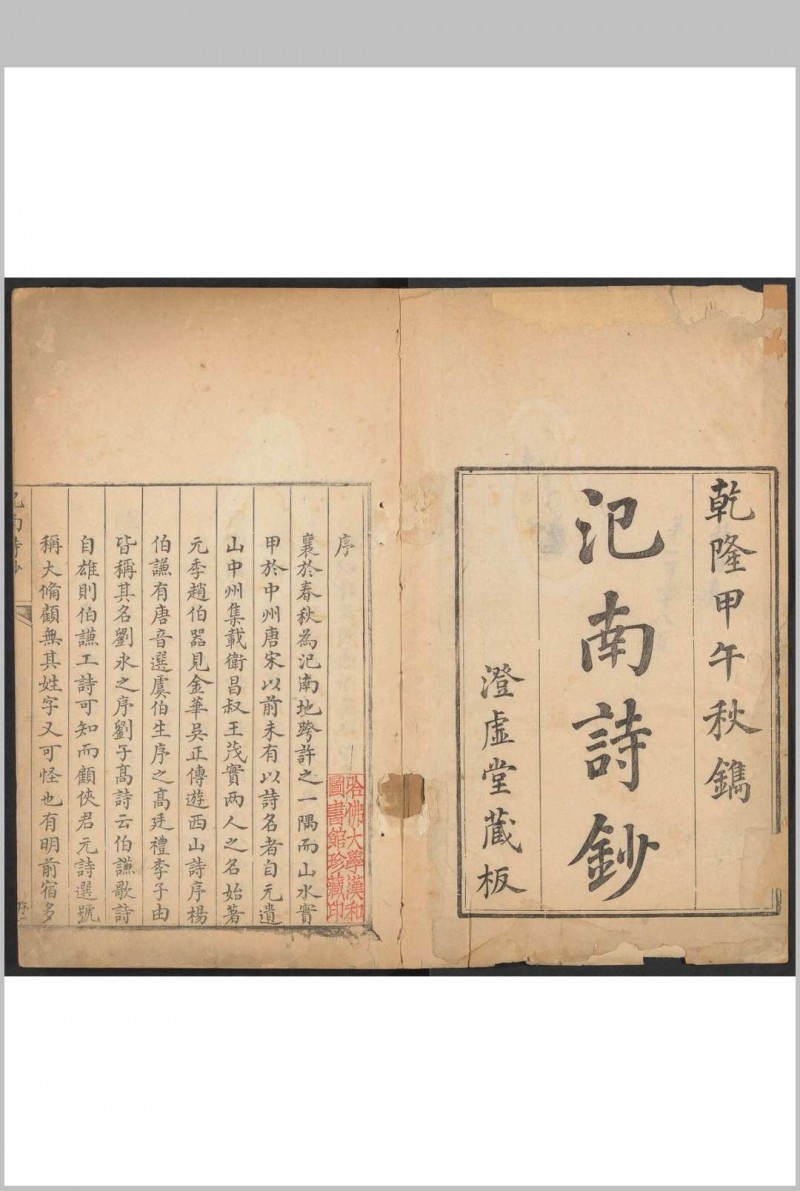 乾隆甲午秋鐫
氾南詩鈔
澄虛堂藏板
序
襄於春秋為氾南地跨許之一隅而山水實
甲於中州唐宋以前未有以詩名者自元遺
山中州集載衛昌叔王茂實两人之名始著
元季趙伯器見金華吳正傳遊西山詩序楊
伯謙有唐音選虞伯生序之高廷禮李子由
皆稱其名劉永之序劉子髙詩云伯謙歌詩
自雄則伯謙工詩可知而顧俠君元詩選號
稱大備顧無其姓字又可怪也有明前宿多
哈佛大學漢和
圖書館珍藏印